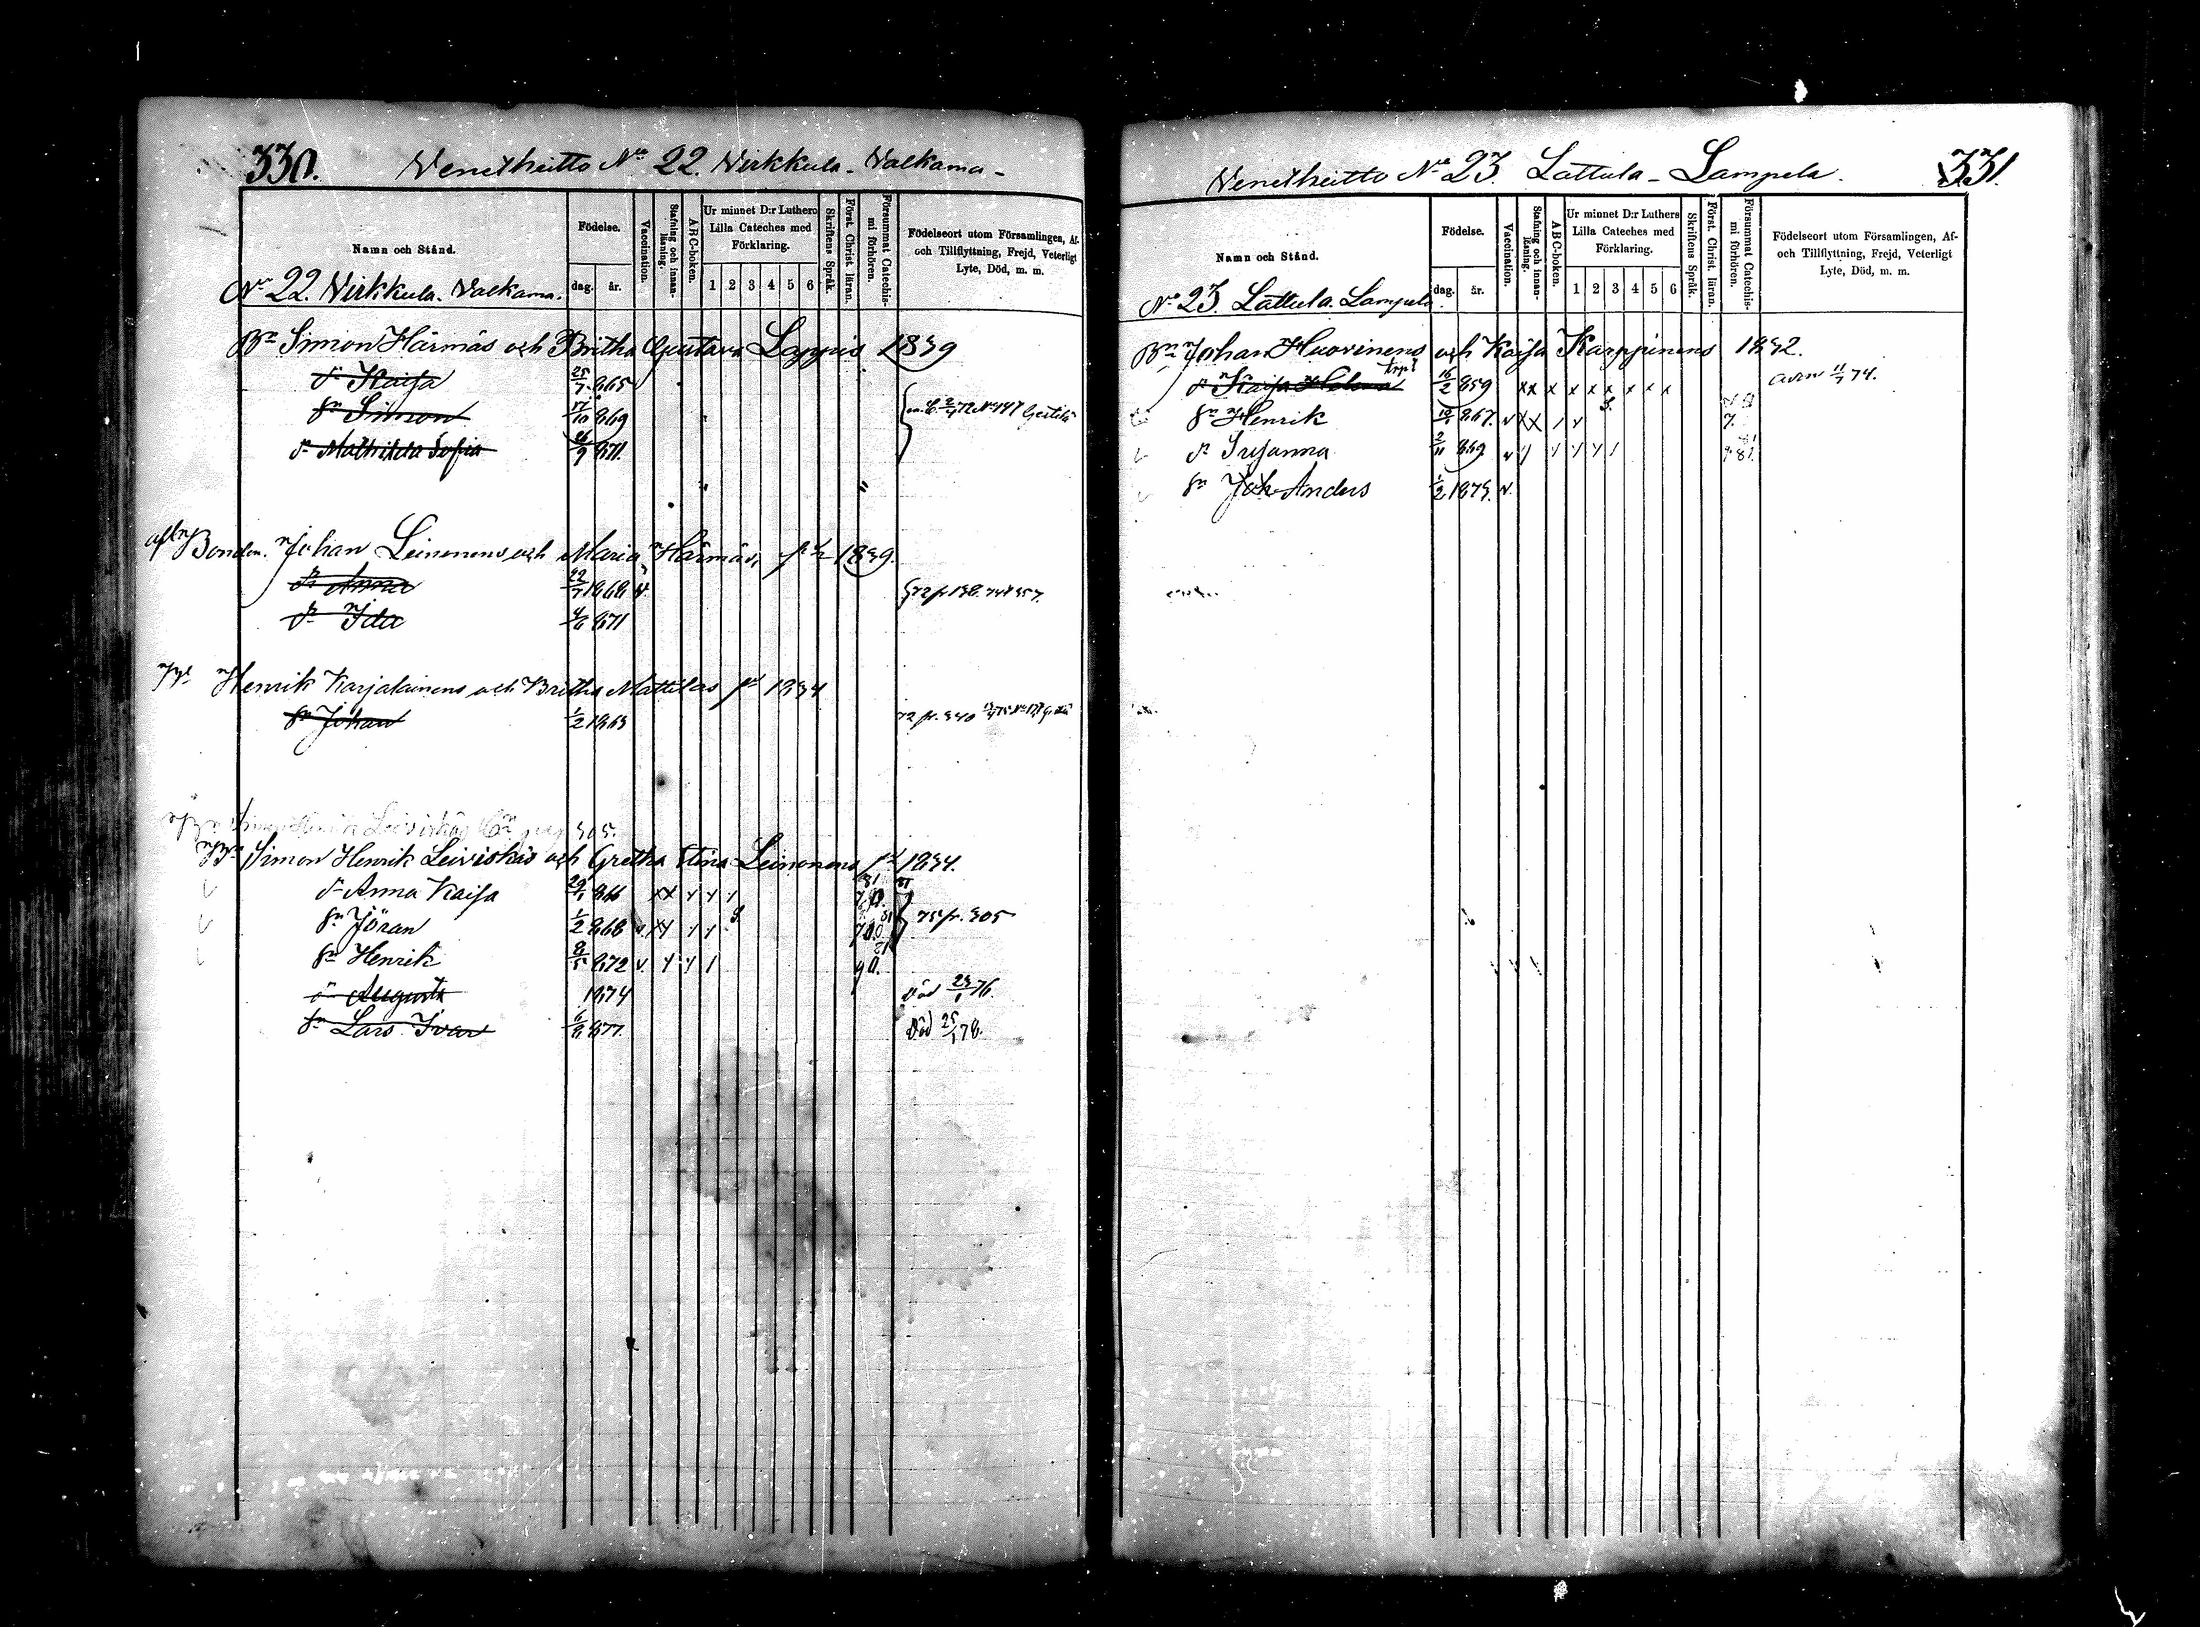 330. Venetheitto No 22. Virkkula - Valkama -
Namn och Stånd.
Födelse.
dag.
år.
Vaccination.
Stafning och innanläsning.
ABC-boken.
Ur minnet D:r Luthers Lilla Cateches med Förklaring.
1 2 3 4 5 6
Skriftens Språk.
Först. Christ. läran.
Försummat Catechismi förhören.
Födelseort utom Församlingen, Af- och Tillflyttning, Frejd, Veterligt Lyte, Död, m. m.
No 22. Virkkula. Valkama.
Bn Simon Härmäs och Britha Gustava Lappis 1839
dr Kaisa 25/7 865
sn Simon 17/10 869
dr Mathilda Sofia 26/9 871.
Bonden. Johan Leinonens och Maria Härmäs, 1839.
dr Anna 22/7 1868 v.
dr Ida 4/6 871
Henrik Karjalainens och Britha Mattilas 1834
sn Johan 1/2 1863 72 fr. 340
305.
Simon Henrik Leiviskäs och Gretha Stina Leinonens 1834.
dr Anna Kaisa 29/1 866
sn Jöran 1/2 868 v. 75 fr. 305
sn Henrik 8/5 872 v.
dr Augusta 1874 död 23/1 76.
sn Lars Ivar 6/8 877. död 25/1 78.
Venetheitto No 23. Lattula - Lampela. 331.
Namn och Stånd.
Födelse.
dag.
år.
Vaccination.
Stafning och innanläsning.
ABC-boken.
Ur minnet D:r Luthers Lilla Cateches med Förklaring.
1 2 3 4 5 6
Skriftens Språk.
Först. Christ. läran.
Försummat Catechismi förhören.
Födelseort utom Församlingen, Af- och Tillflyttning, Frejd, Veterligt Lyte, Död, m. m.
No 23. Lattula. Lampela.
Bn Johan Huovinens och Kaisa Karppinens 1832.
dr Kaisa Helena 16/2 859 xx x x x x x x x 11/7 74.
sn Henrik 867. v xx
dr Susanna 2/11 869
sn Joh. Anders 1/2 1875. v.